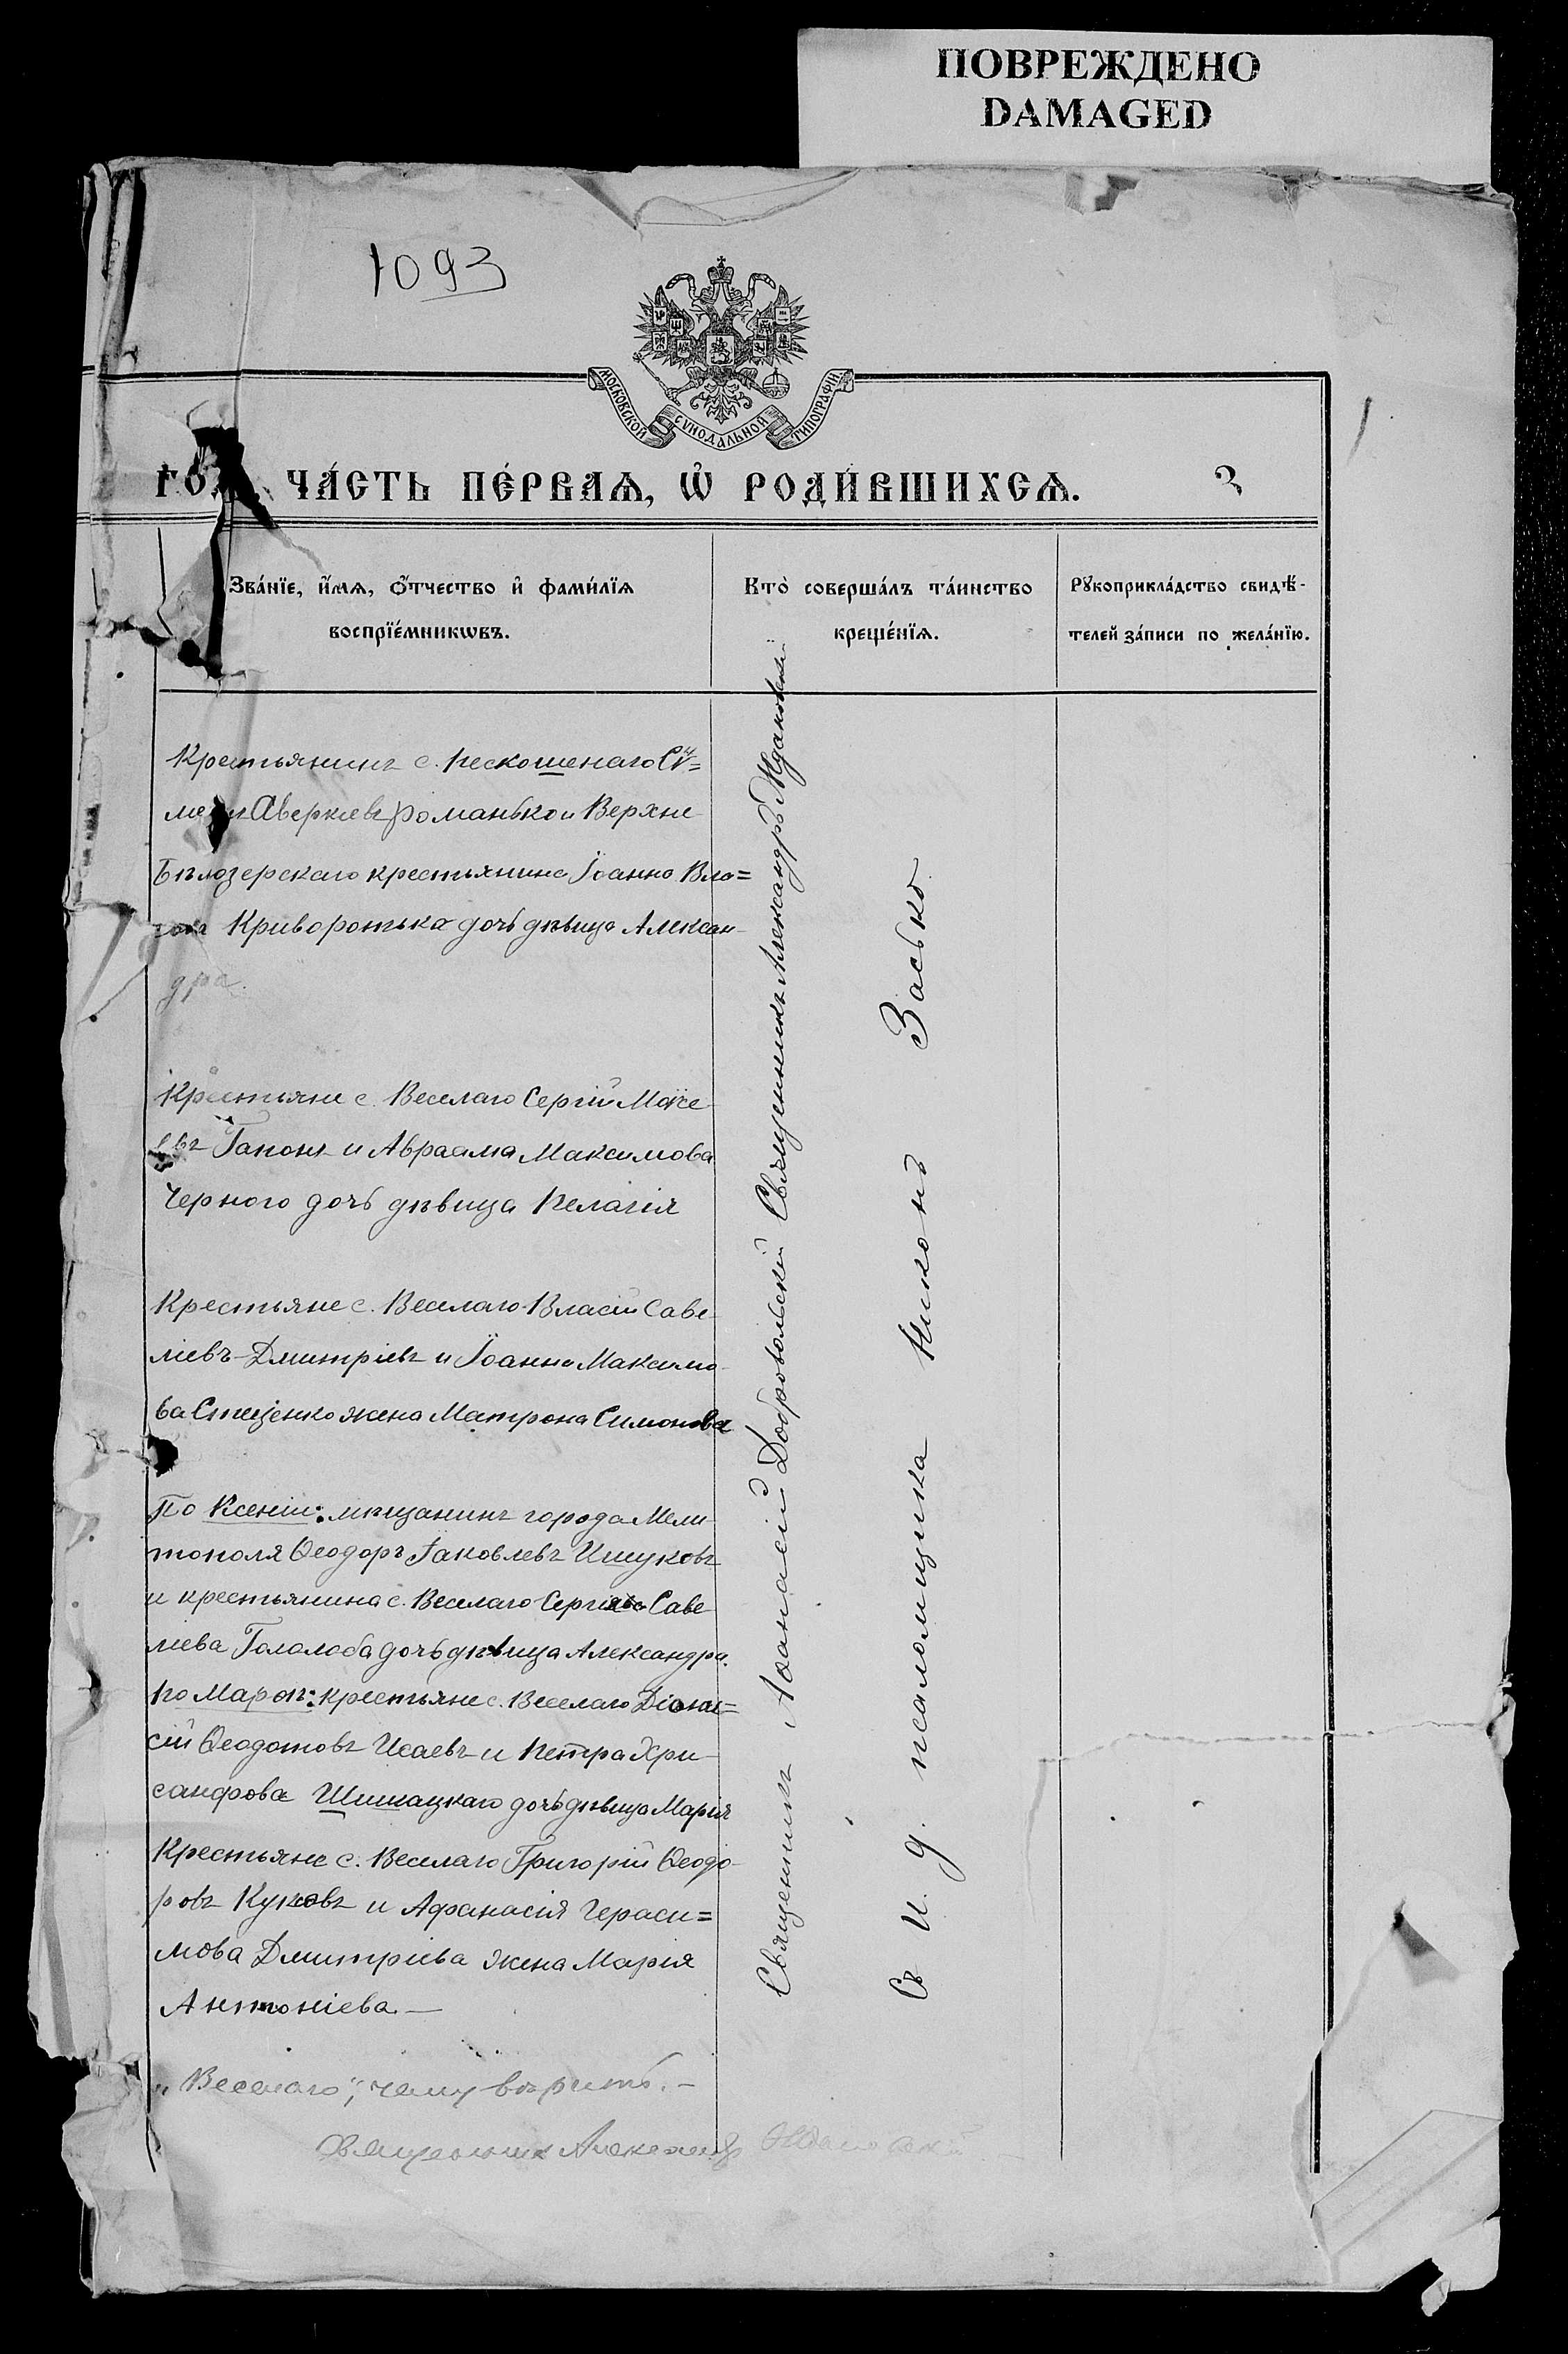 ПОВРЕЖДЕНО
DAMAGED
1093
МОСКОВСКОЙ СѴНОДАЛЬНОЙ ТИПОГРАФІИ
ЧА́СТЬ ПЕ́РВАѦ, Ѡ҆ РОДИ́ВШИХСѦ.
3
Зва́нїе, и҆́мѧ, ѻ҆́тчество и҆ фами́лїѧ
воспрїе́мникѡвъ.
Кто̀ соверша́лъ та́инство
креще́нїѧ.
Рꙋкоприкла́дство свидѣ́-
телей за́писи по жела́нїю.
Крестьянинъ с. Нескошенаго Сѵ=
Аверкіевъ Романько и Верхне
Бѣлозерскаго крестьянина Іоанна Вла=
Криворотька дочь дѣвица Алексан-
дра.
Крестьяне с. Веселаго Сергій Моѵсе
евъ Гапонъ и Авраама Максимова
Черного дочь дѣвица Пелагія
Крестьяне с. Веселаго Власій Саве-
ліевъ Дмитріевъ и Іоанна Максимо-
ва Стеценко жена Матрона Симонова
По Ксеніи: мѣщанинъ города Мели-
тополя Ѳеодоръ Іаковлевъ Ишуковъ
и крестьянина с. Веселаго Сергія Саве-
ліева Гололоба дочь дѣвица Александра.
По Марѳѣ: крестьяне с. Веселаго Діони=
сій Ѳеодотовъ Исаевъ и Петра Хри-
санфова Шишацкаго дочь дѣвица Марія
Крестьяне с. Веселаго Григорій Ѳеодо-
ровъ Куковъ и Афанасія Гераси=
мова Дмитріева жена Марія
Антоніева.—
„Веселаго", чему вѣрить.—
Священникъ Александръ Ждановскій
Священникъ Аѳанасій Добровольскій Священникъ Александръ Ждановскій
Съ И. д. псаломщика Никонъ Засько.